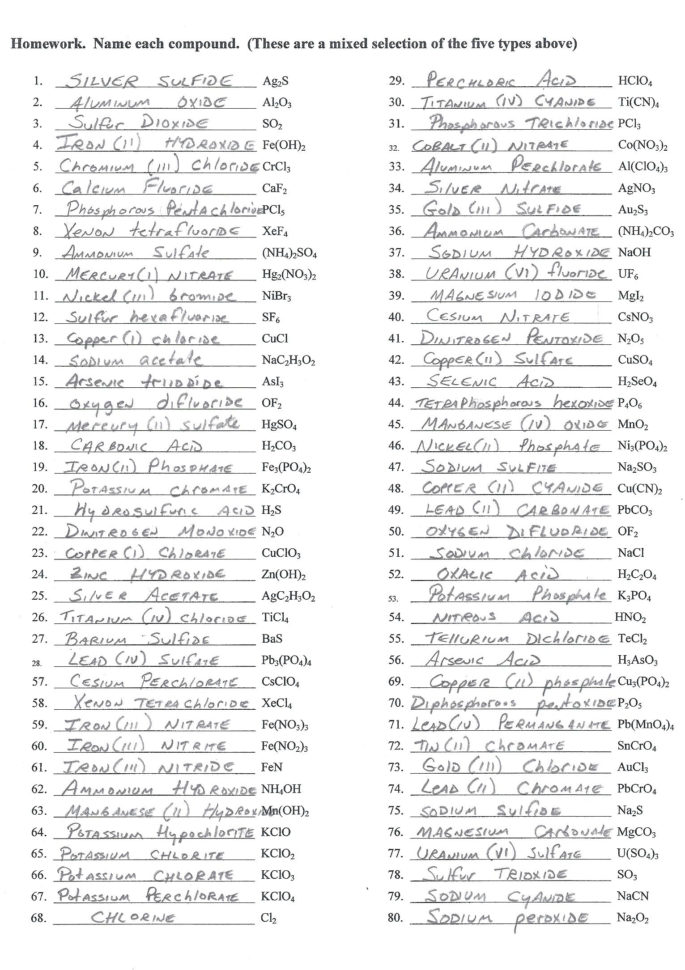 Homework. Name each compound. (These are a mixed selection of the five types above)
1. SILVER SULFIDE Ag₂S
2. Aluminum OXIDE Al₂O₃
3. Sulfur DIOXIDE SO₂
4. IRON (11) HYDROXIDE Fe(OH)₂
5. Chromium (111) Chloride CrCl₃
6. Calcium Fluoride CaF₂
7. Phosphorous PentachloridePCl₅
8. Xenon tetrafluoride XeF₄
9. Ammonium Sulfate (NH₄)₂SO₄
10. MERCURY(1) NITRATE Hg₂(NO₃)₂
11. Nickel (111) bromide NiBr₃
12. Sulfur hexafluoride SF₆
13. Copper (1) chloride CuCl
14. SODIUM acetate NaC₂H₃O₂
15. Arsenic triiodide AsI₃
16. Oxygen difluoride OF₂
17. Mercury (11) sulfate HgSO₄
18. CARBONIC ACID H₂CO₃
19. IRON(11) PHOSPHATE Fe₃(PO₄)₂
20. POTASSIUM chromATE K₂CrO₄
21. Hydrosulfuric ACID H₂S
22. DINITROGEN MONOXIDE N₂O
23. COPPER (1) ChlORATE CuClO₃
24. ZINC HYDROXIDE Zn(OH)₂
25. SILVER ACETATE AgC₂H₃O₂
26. TITANIUM (IV) Chloride TiCl₄
27. BARIUM SulfiDE BaS
28. LEAD (IV) SulfATE Pb₃(PO₄)₄
57. CESIUM PERchlORATE CsClO₄
58. XENON TETRAchloriDE XeCl₄
59. IRON (111) NITRATE Fe(NO₃)₃
60. IRON (111) NITRITE Fe(NO₂)₃
61. IRON (111) NITRIDE FeN
62. AMMONIUM HYDROXIDE NH₄OH
63. MANGANESE (11) HYDROXIMn(OH)₂
64. POTASSIUM HypochlorITE KClO
65. POTASSIUM CHLORITE KClO₂
66. POTASSIUM CHLORATE KClO₃
67. POTASSIUM PERchlORATE KClO₄
68. CHLORINE Cl₂
29. PERCHLORIC ACID HClO₄
30. TITANIUM (IV) CYANIDE Ti(CN)₄
31. Phosphorous TRIchloriDE PCl₃
32. COBALT (11) NITRATE Co(NO₃)₂
33. Aluminum PERchlorate Al(ClO₄)₃
34. Silver Nitrate AgNO₃
35. Gold (111) SULFIDE Au₂S₃
36. AMMONIUM CARBONATE (NH₄)₂CO₃
37. SODIUM HYDROXIDE NaOH
38. URANIUM (VI) fluoride UF₆
39. MAGNESIUM IODIDE MgI₂
40. CESIUM NITRATE CsNO₃
41. DINITROGEN PENTOXIDE N₂O₅
42. COPPER(11) SulfATE CuSO₄
43. SELENIC ACID H₂SeO₄
44. TETRAPhosphorous hexOXIDE P₄O₆
45. MANGANESE (IV) OXIDE MnO₂
46. NICKEL(11) Phosphate Ni₃(PO₄)₂
47. SODIUM SULFITE Na₂SO₃
48. COPPER (11) CYANIDE Cu(CN)₂
49. LEAD (11) CARBONATE PbCO₃
50. OXYGEN DIFLUORIDE OF₂
51. SODIUM ChloriDE NaCl
52. OXALIC ACID H₂C₂O₄
53. Potassium Phosphate K₃PO₄
54. NITROUS ACID HNO₂
55. TELLURIUM DIchloriDE TeCl₂
56. Arsenic ACID H₃AsO₃
69. Copper (11) phosphate Cu₃(PO₄)₂
70. Diphosphorous pentoxide P₂O₅
71. LEAD(IV) PERMANGANATE Pb(MnO₄)₄
72. TIN (11) ChromATE SnCrO₄
73. Gold (111) Chloride AuCl₃
74. LEAD (11) ChromATE PbCrO₄
75. SODIUM SulfiDE Na₂S
76. MAGNESIUM CARBONATE MgCO₃
77. URANIUM (VI) SulfATE U(SO₄)₃
78. Sulfur TRIOXIDE SO₃
79. SODIUM CYANIDE NaCN
80. SODIUM peroxIDE Na₂O₂